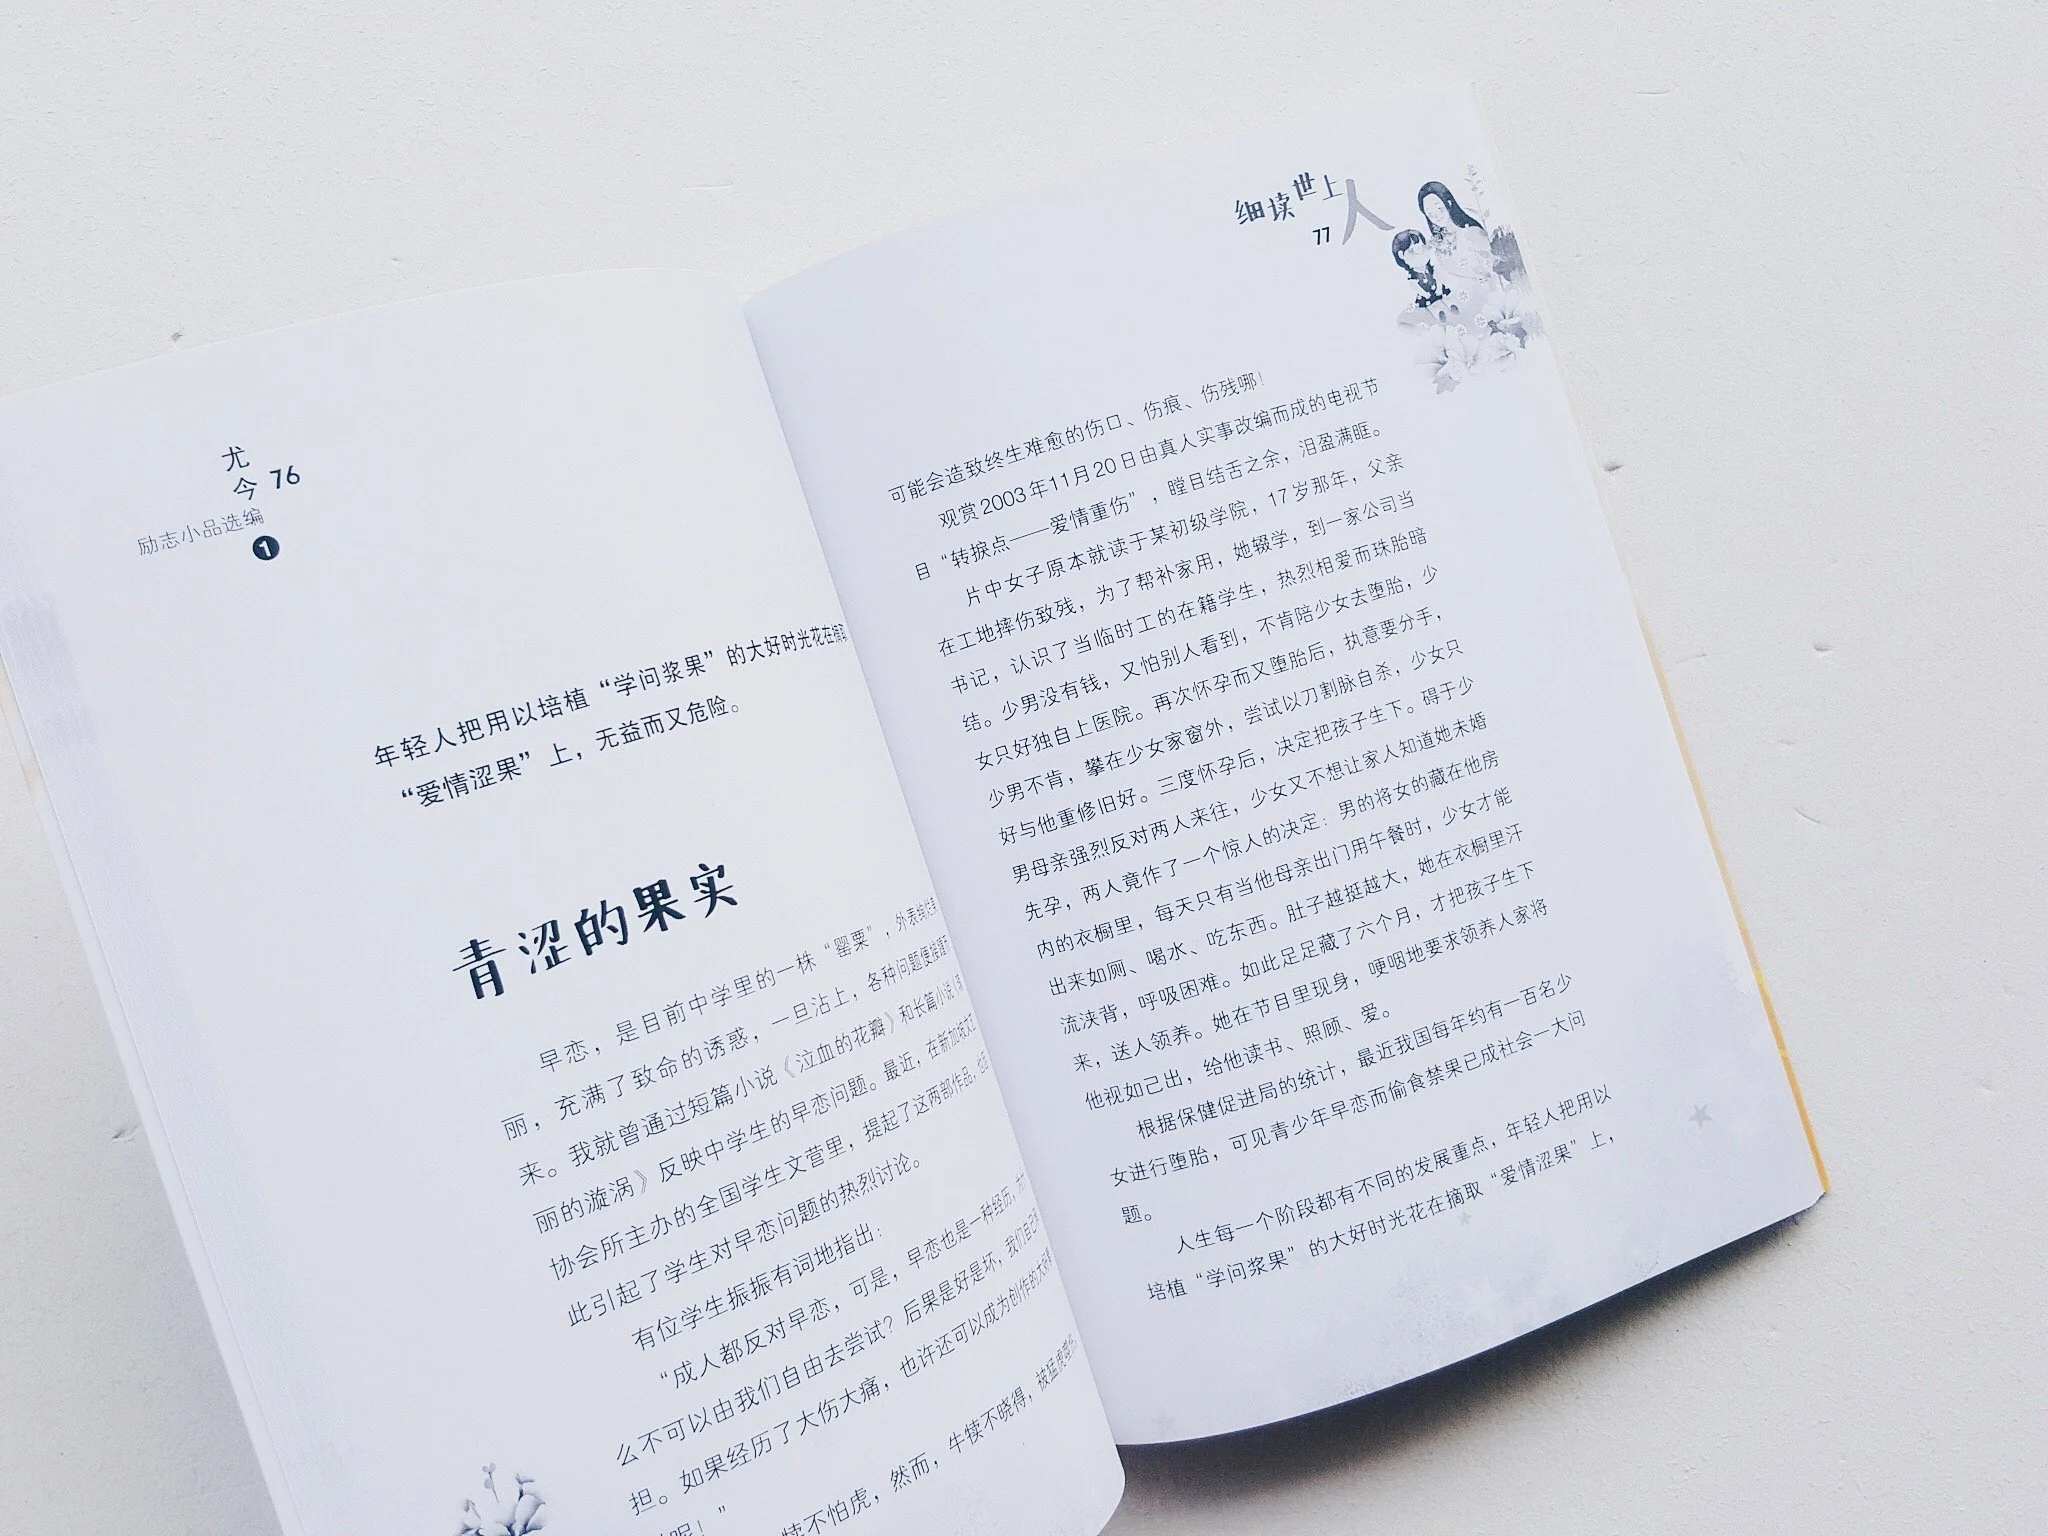 尤今 76
励志小品选编
1
年轻人把用以培植“学问浆果”的大好时光花在摘取
“爱情涩果”上，无益而又危险。
青涩的果实
早恋，是目前中学里的一株“罂粟”，外表绚
丽，充满了致命的诱惑，一旦沾上，各种问题便
来。我就曾通过短篇小说《泣血的花瓣》和长篇小说
丽的漩涡》反映中学生的早恋问题。最近，在新加坡文艺
协会所主办的全国学生文营里，提起了这两部作品，
此引起了学生对早恋问题的热烈讨论。
有位学生振振有词地指出：
“成人都反对早恋，可是，早恋也是一种经历，
么不可以由我们自由去尝试？后果是好是坏，我们自己
担。如果经历了大伤大痛，也许还可以成为创作的大
呢！”
犊不怕虎，然而，牛犊不晓得，被猛虎
细读世上人
77
可能会造致终生难愈的伤口、伤痕、伤残哪！
观赏2003年11月20日由真人实事改编而成的电视节
目“转捩点——爱情重伤”，瞠目结舌之余，泪盈满眶。
片中女子原本就读于某初级学院，17岁那年，父亲
在工地摔伤致残，为了帮补家用，她辍学，到一家公司当
书记，认识了当临时工的在籍学生，热烈相爱而珠胎暗
结。少男没有钱，又怕别人看到，不肯陪少女去堕胎，少
女只好独自上医院。再次怀孕而又堕胎后，执意要分手，
少男不肯，攀在少女家窗外，尝试以刀割脉自杀，少女只
好与他重修旧好。三度怀孕后，决定把孩子生下。碍于少
男母亲强烈反对两人来往，少女又不想让家人知道她未婚
先孕，两人竟作了一个惊人的决定：男的将女的藏在他房
内的衣橱里，每天只有当他母亲出门用午餐时，少女才能
出来如厕、喝水、吃东西。肚子越挺越大，她在衣橱里汗
流浃背，呼吸困难。如此足足藏了六个月，才把孩子生下
来，送人领养。她在节目里现身，哽咽地要求领养人家将
他视如己出，给他读书、照顾、爱。
根据保健促进局的统计，最近我国每年约有一百名少
女进行堕胎，可见青少年早恋而偷食禁果已成社会一大问
题。
人生每一个阶段都有不同的发展重点，年轻人把用以
培植“学问浆果”的大好时光花在摘取“爱情涩果”上，